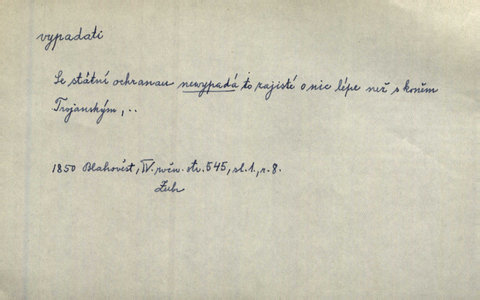 vypadati
Se státní ochranau newypadá to zajisté o nic lépe než s koněm
Trojanským, ..
1850 Blahověst, IV. roč. str. 545, sl. 1., ř. 8.
Zub